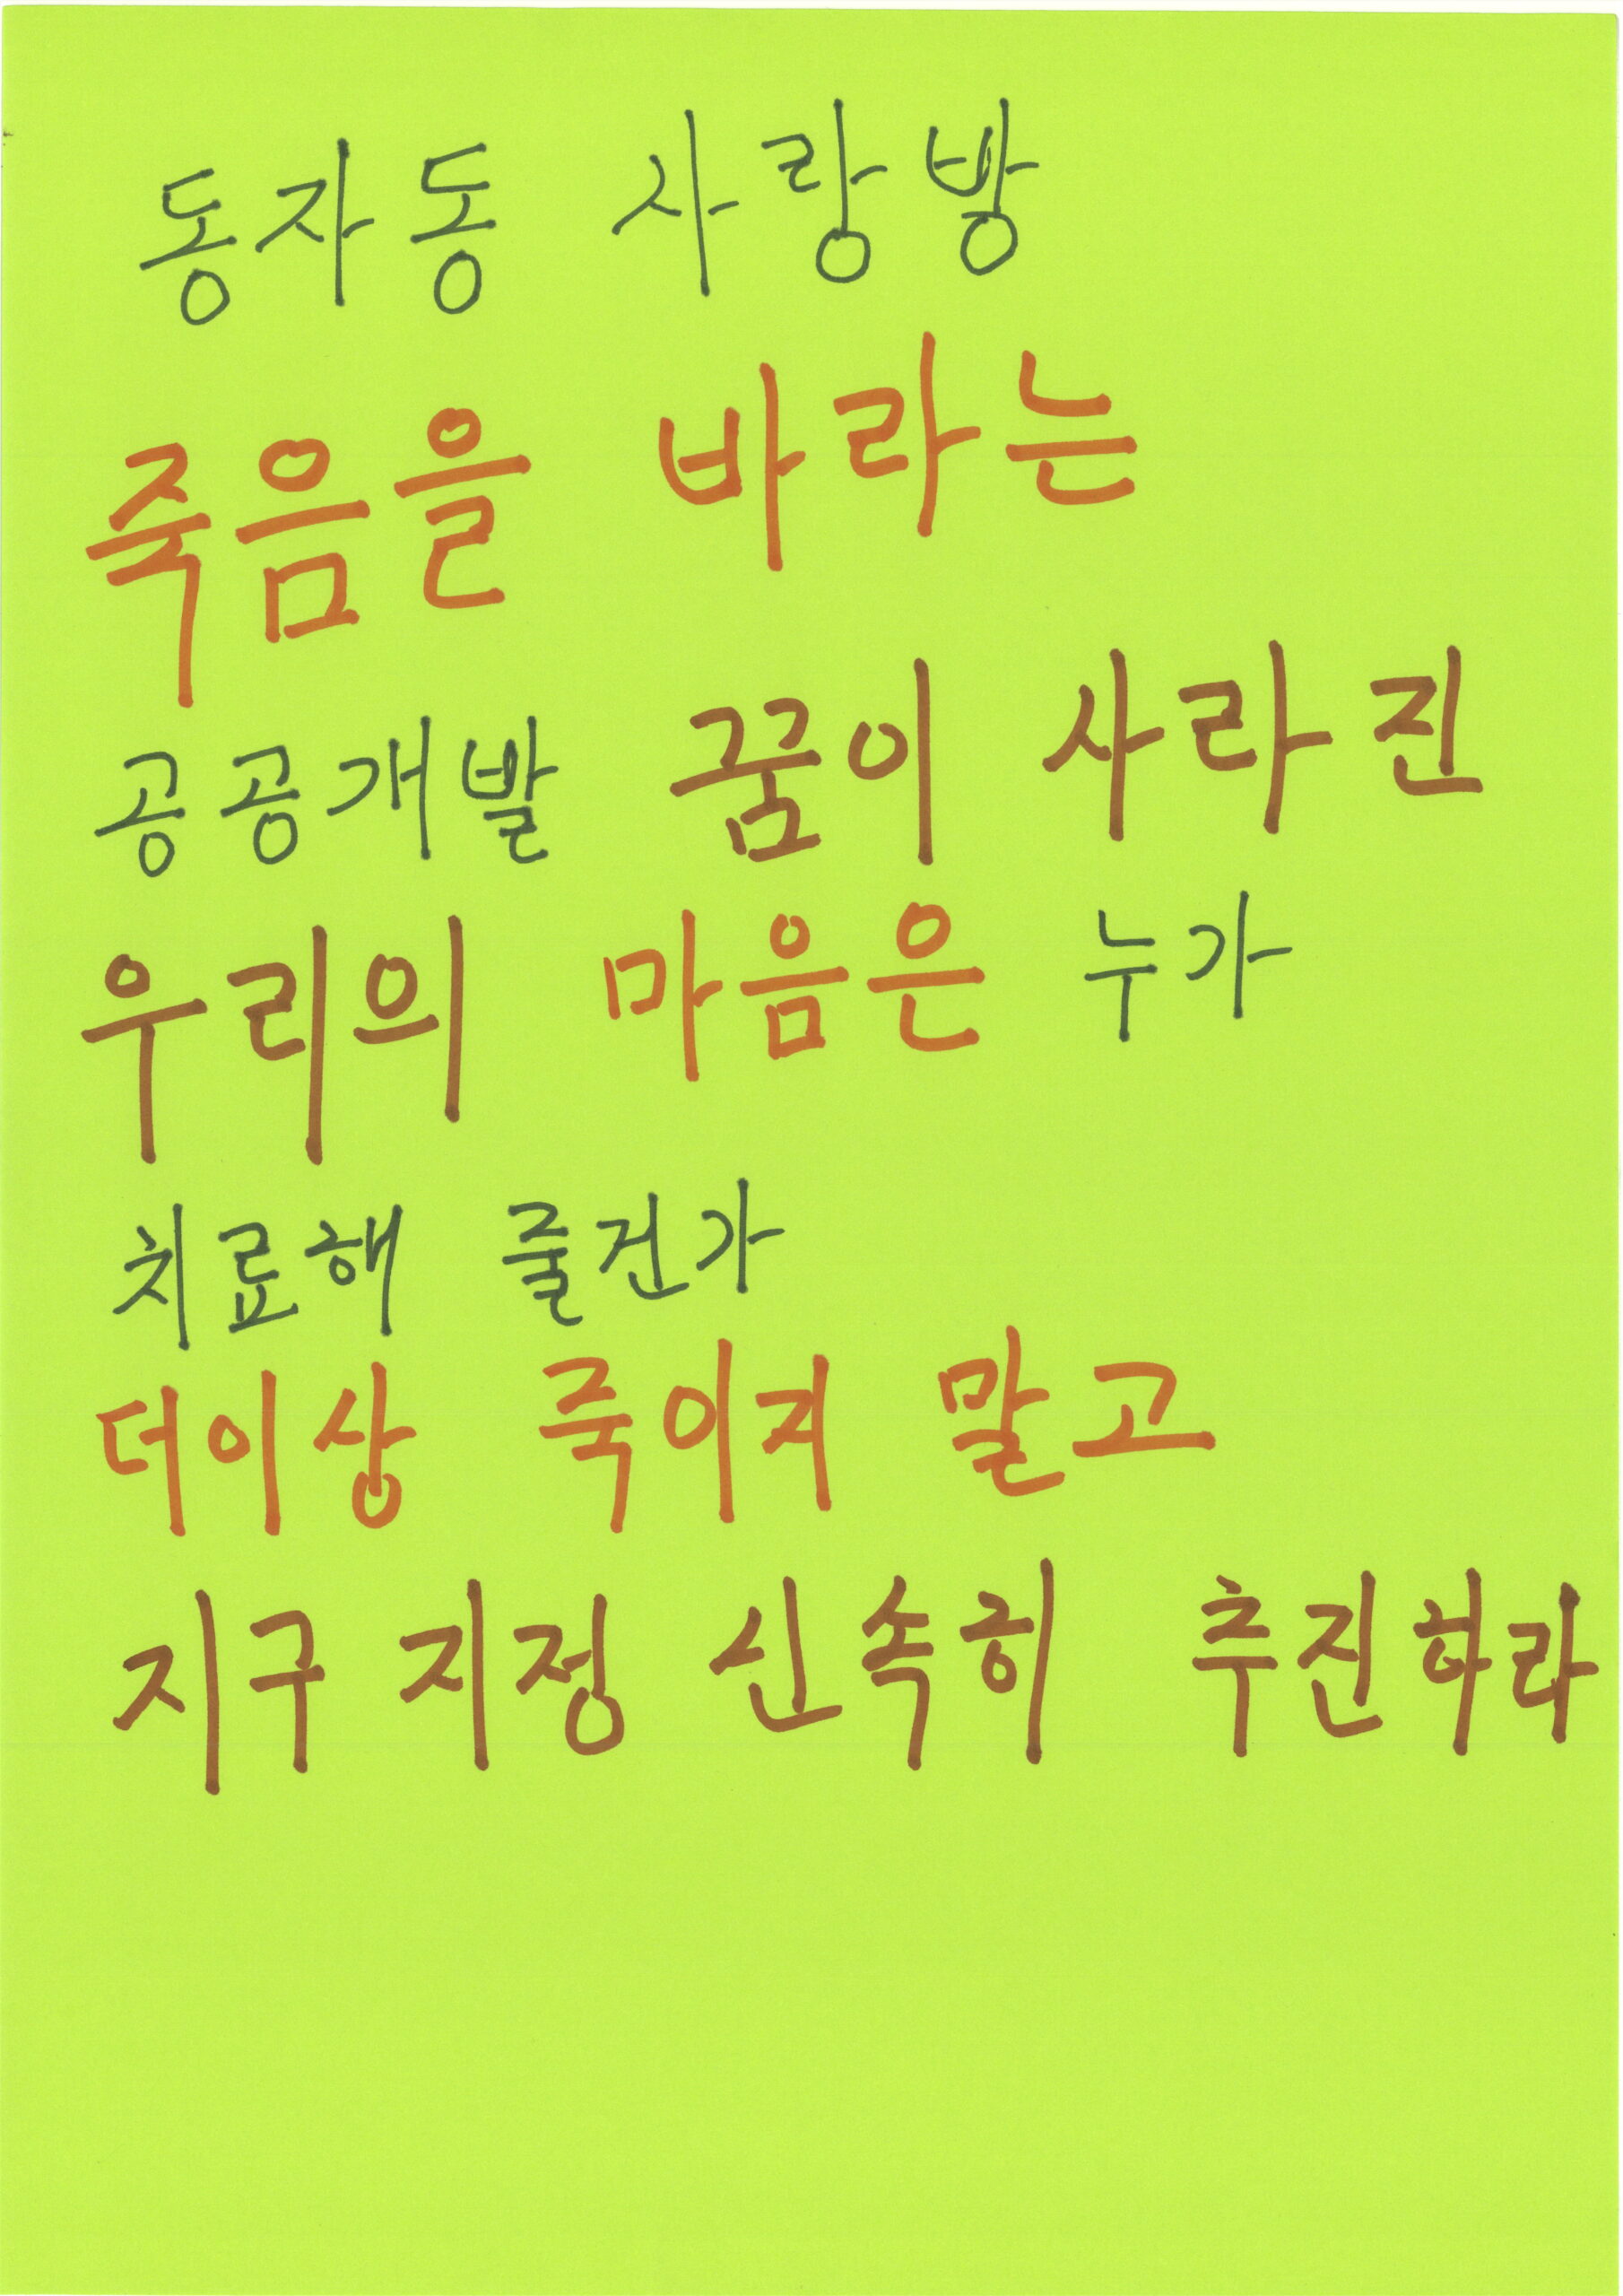 동자동 사랑방
죽음을 바라는
공공개발 꿈이 사라진
우리의 마음은 누가
치료해 줄건가
더이상 죽이지 말고
지구 지정 신속히 추진하라